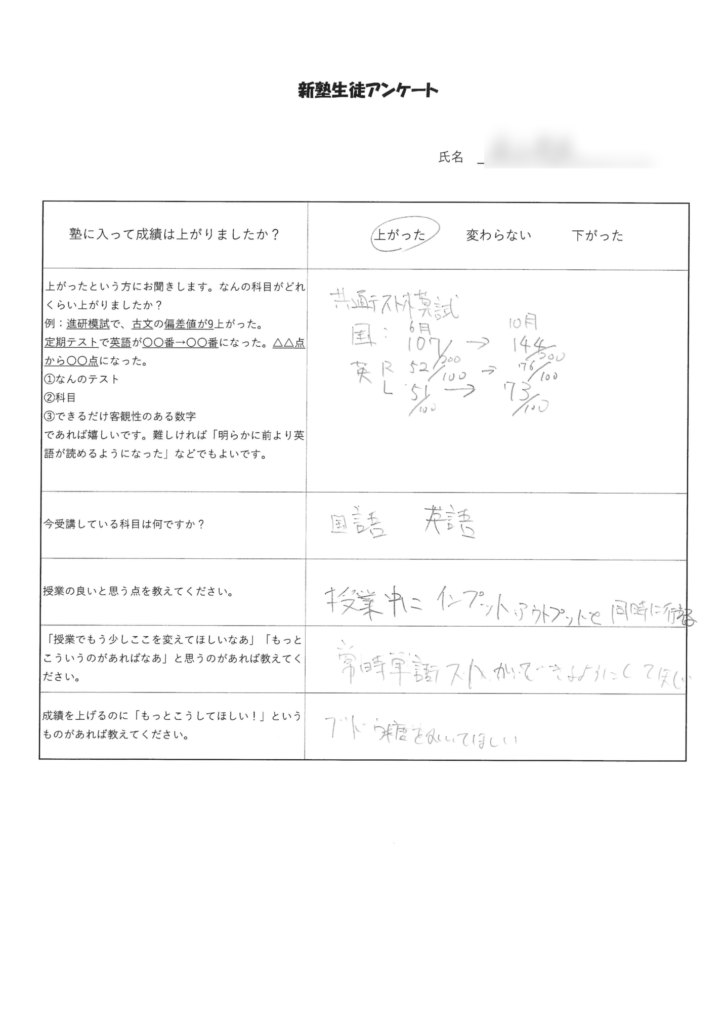 新塾生徒アンケート
氏名
塾に入って成績は上がりましたか？
上がった 変わらない 下がった
上がったという方にお聞きします。なんの科目がどれ
くらい上がりましたか？
例：進研模試で、古文の偏差値が9上がった。
定期テストで英語が〇〇番→〇〇番になった。△△点
から〇〇点になった。
①なんのテスト
②科目
③できるだけ客観性のある数字
であれば嬉しいです。難しければ「明らかに前より英
語が読めるようになった」などでもよいです。
共通テスト 模試
6月 10月
国： 107/200 → 144/200
英 R 52/100 → 76/100
L 51/100 → 73/100
今受講している科目は何ですか？
国語 英語
授業の良いと思う点を教えてください。
授業中に インプット、アウトプットを 同時に行える
「授業でもう少しここを変えてほしいなあ」「もっと
こういうのがあればなあ」と思うのがあれば教えてく
ださい。
常時単語テスト できるようにしてほしい
成績を上げるのに「もっとこうしてほしい！」という
ものがあれば教えてください。
ブドウ糖を おいてほしい